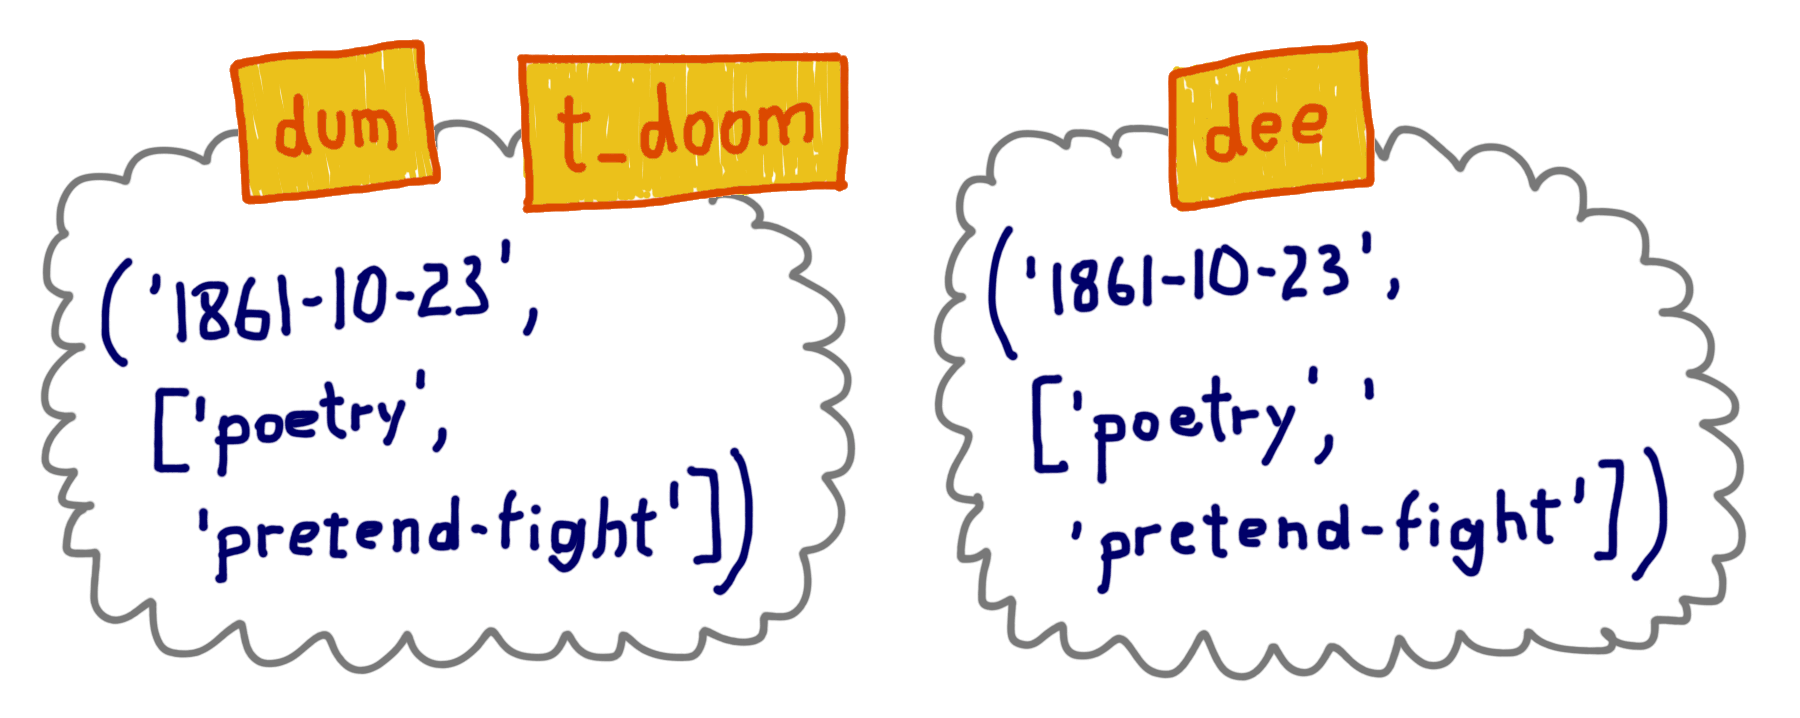 dum
t_doom
('1861-10-23',
['poetry',
'pretend-fight'])
dee
('1861-10-23',
['poetry','
'pretend-fight'])